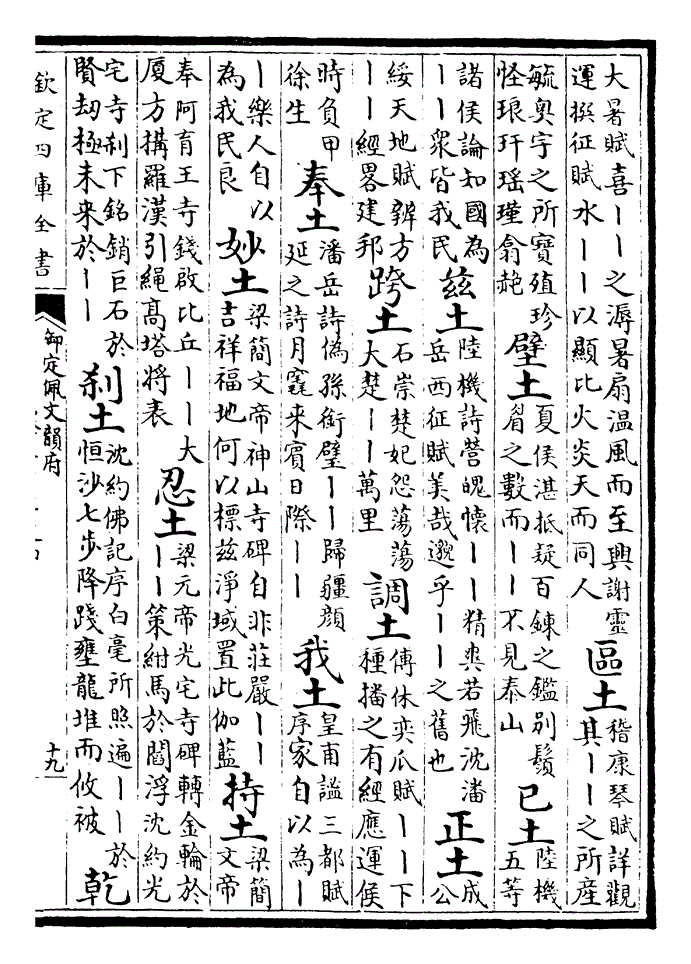 大暑賦喜丨丨之溽暑扇温風而至興謝靈
運撰征賦水丨丨以顯比火炎天而同人
區土
嵇康琴賦詳觀
其丨丨之所産
毓奥宇之所寶殖珍
怪琅玕瑶瑾翕赩
壁土
夏侯湛抵疑百鍊之鑑别鬚
眉之數而丨丨不見泰山
已土
陸機
五等
諸侯論知國為
丨丨衆皆我民
兹土
陸機詩營魄懷丨丨精爽若飛沈潘
岳西征賦美哉邈乎丨丨之舊也
正土
成
公
綏天地賦辨方
丨丨經畧建邦
跨土
石崇楚妃怨蕩蕩
大楚丨丨萬里
調土
傅休奕瓜賦丨丨下
種播之有經應運侯
時負甲
徐生
奉土
潘岳詩偽孫銜璧丨丨歸疆顔
延之詩月竁來賓日際丨丨
我土
皇甫謐三都賦
序家自以為丨
丨樂人自以
為我民良
妙土
梁簡文帝神山寺碑自非莊嚴丨丨
吉祥福地何以標兹淨域置此伽藍
持土
梁簡
文帝
奉阿育王寺錢啟比丘丨丨大
厦方搆羅漢引繩高塔將表
忍土
梁元帝光宅寺碑轉金輪於
丨丨策紺馬於閻浮沈約光
宅寺刹下銘銷巨石於
賢劫極未来於丨丨
刹土
沈約佛記序白毫所照遍丨丨於
恒沙七步降踐壅龍堆而攸被
乾
欽定四庫全書
御定佩文韻府
十九